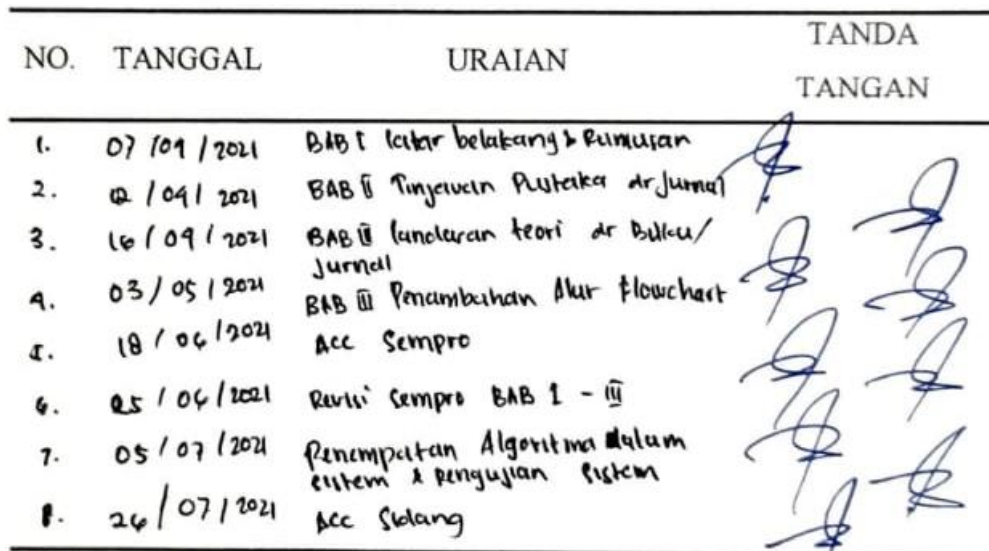 NO. TANGGAL URAIAN TANDA
TANGAN
1. 07/04/2021 BAB I latar belakang & Rumusan
2. 12/04/2021 BAB II Tinjauan Pustaka dr Jurnal
3. 16/04/2021 BAB II landasan teori dr Buku/
Jurnal
4. 03/05/2021 BAB III Penambahan Alur Flowchart
5. 18/06/2021 Acc Sempro
6. 25/06/2021 Revisi Sempro BAB I - III
7. 05/07/2021 Penempatan Algoritma dalam
sistem & Pengujian Sistem
8. 26/07/2021 Acc Sidang